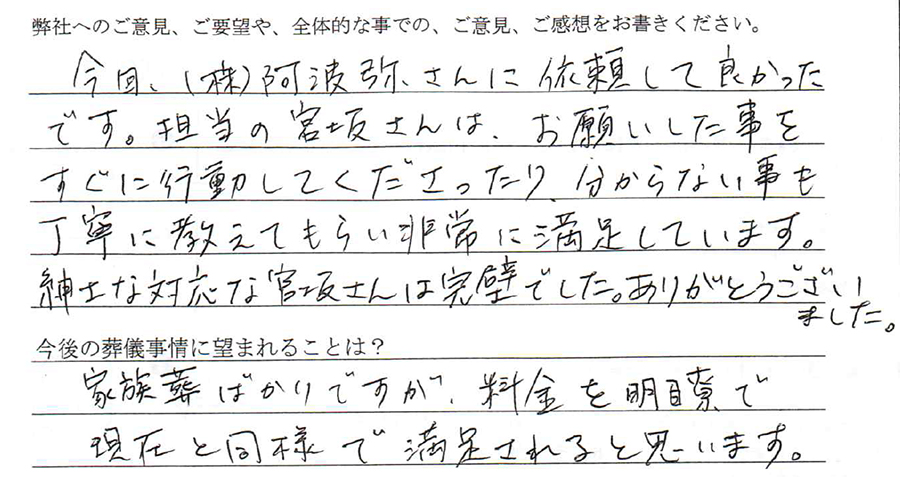 弊社へのご意見、ご要望や、全体的な事での、ご意見、ご感想をお書きください。
今回、(株)阿波弥さんに依頼して良かった
です。担当の宮坂さんは、お願いした事を
すぐに行動してくださったり、分からない事も
丁寧に教えてもらい非常に満足しています。
紳士な対応な宮坂さんは完璧でした。ありがとうござい
ました。
今後の葬儀事情に望まれることは?
家族葬ばかりですが、料金を明瞭で
現在と同様で満足されると思います。